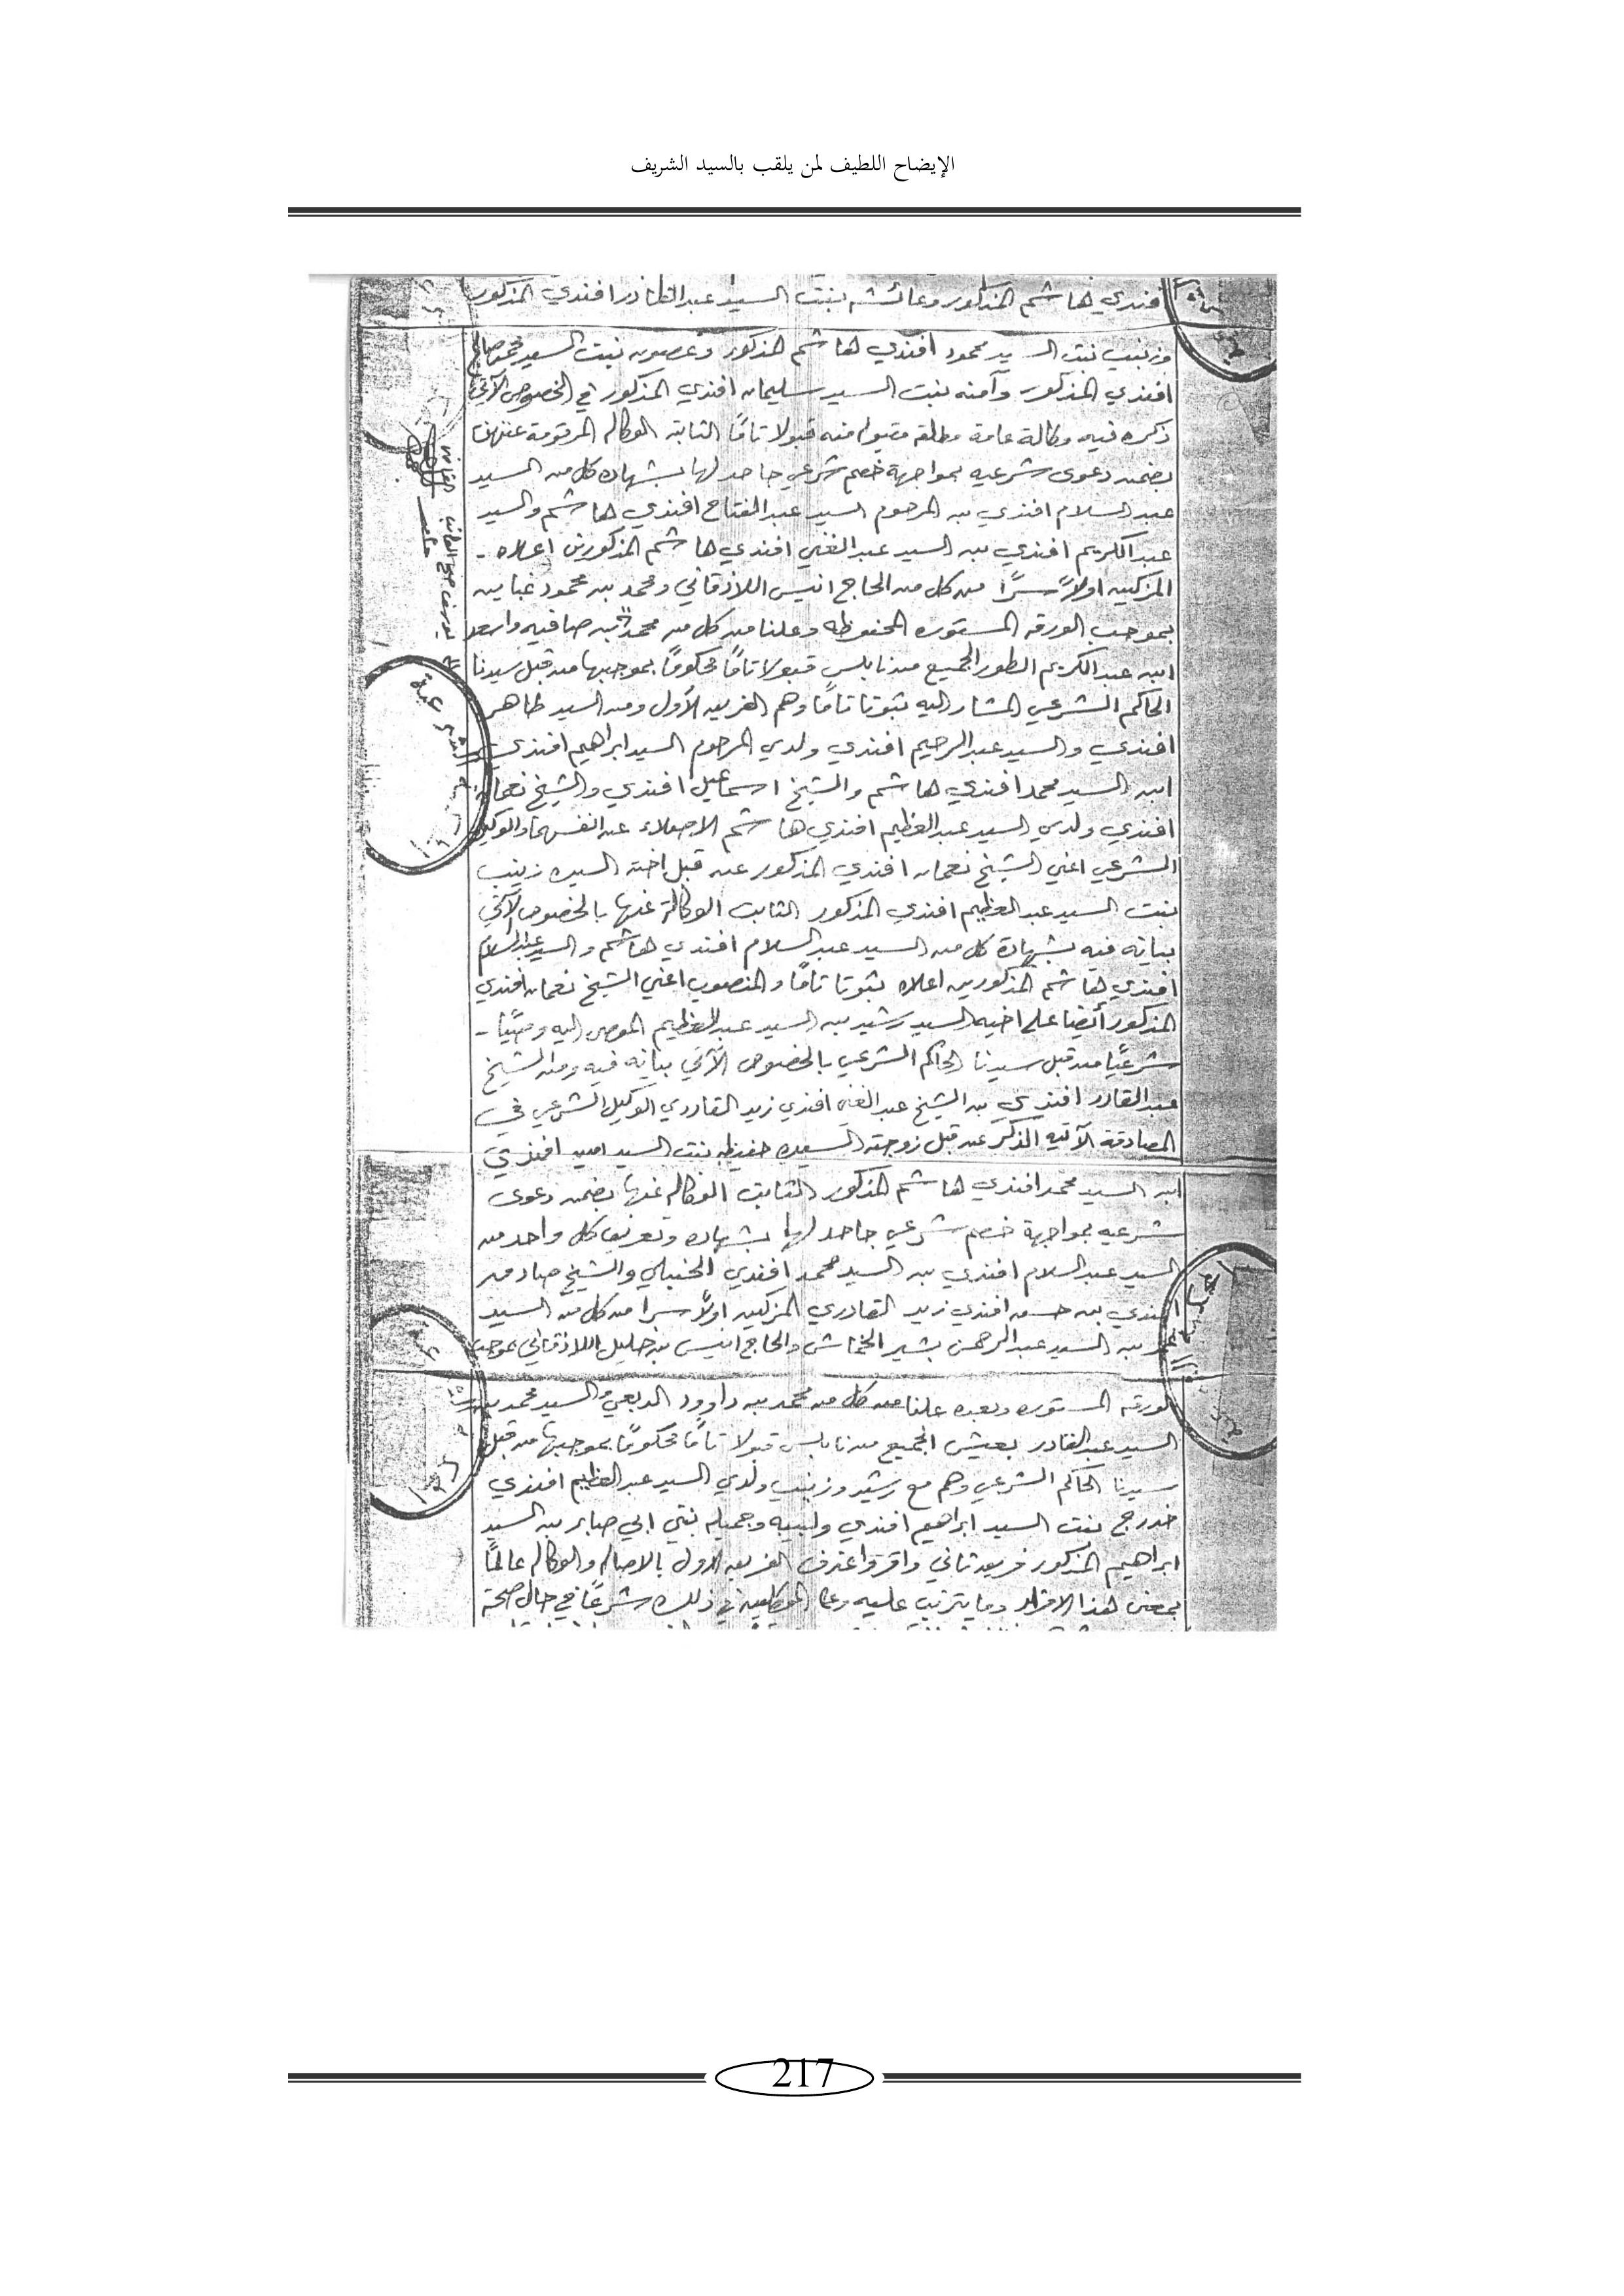 الإيضاح اللطيف لمن يلقب بالسيد الشريف
افندي هاشم المذكور وعائشه بنت السيد عبدالقادر افندي المذكور
وزينب بنت السيد محمود افندي هاشم المذكور وغصون بنت السيد محمد صالح
افندي المذكور وآمنه بنت السيد سليمان افندي المذكور في الخصوص الآتي
ذكره فيه وكالة عامة مطلقه مقبوله منه قبولا تامًا الثابته الوكاله المرقومة عنهن
بضمن دعوى شرعيه بمواجهة خصم شرعي جاحد لها بشهادة كل من السيد
عبد السلام افندي بن المرحوم السيد عبد الفتاح افندي هاشم والسيد
عبد الكريم افندي بن السيد عبد الغني افندي هاشم المذكورين اعلاه -
المزكيين اولاً سرًا من كل من الحاج انيس اللاذقاني ومحمد بن محمود
بموجب الورقه المستوره المحفوظه وعلنا من كل من محمد بن واسعد
ابن عبد الكريم الطور الجميع من نابلس قبولا تامًا محكومًا بموجبها من قبل سيدنا
الحاكم الشرعي المشار اليه ثبوتا تامًا وهم الفريق الأول ومن السيد طاهر
افندي والسيد عبد الرحيم افندي ولدي المرحوم السيد ابراهيم افندي
ابن السيد محمد افندي هاشم والشيخ اسماعيل افندي والشيخ نعمان
افندي ولدي السيد عبد العظيم افندي هاشم الاصلاء عن انفسهما والوكيل
الشرعي اعني الشيخ نعمان افندي المذكور عن قبل اخته السيده زينب
بنت السيد عبد العظيم افندي المذكور الثابت الوكالة عنها بالخصوص الآتي
بيانه فيه بشهادة كل من السيد عبد السلام افندي هاشم والسيد عبد السلام
افندي هاشم المذكورين اعلاه ثبوتا تامًا والمنصوب اعني الشيخ نعمان افندي
المذكور أيضا على اخيه السيد رشيد بن السيد عبد العظيم الموصى اليه وصيًا -
شرعيًا من قبل سيدنا الحاكم الشرعي بالخصوص الآتي بيانه فيه ومن الشيخ
عبد القادر افندي بن الشيخ عبد الغني افندي زيد القادري الوكيل الشرعي في
المصادقة الآتيه الذكر عن قبل زوجته السيده حفيظه بنت السيد امين افندي
ابن السيد محمد افندي هاشم المذكور الثابت الوكاله عنها بضمن دعوى
شرعيه بمواجهة خصم شرعي جاحد لها بشهاده وتعريف كل واحد من
السيد عبد السلام افندي بن السيد محمد افندي الحنبلي والشيخ صادق
افندي بن حسن افندي زيد القادري المزكيين اولاً سرا من كل من السيد
بن السيد عبد الرحمن بشير الخماش والحاج انيس بن خليل اللاذقاني بموجب
الورقه المستوره وبعده علنا من كل من محمد بن داوود الربعي والسيد محمد بن
السيد عبد القادر بعيش الجميع من نابلس قبولا تامًا محكومًا بموجبها من قبل
سيدنا الحاكم الشرعي وهم مع رشيد وزينب ولدي السيد عبد العظيم افندي
خدرج بنت السيد ابراهيم افندي ولبيبه وجميله بنتي ابي صابر بن السيد
ابراهيم المذكور فريق ثاني واقر واعترف الفريق الاول بالاصاله والوكاله عالمًا
بمعنى هذا الاقرار وما يترتب عليه في ذلك شرعًا في حال صحة
217